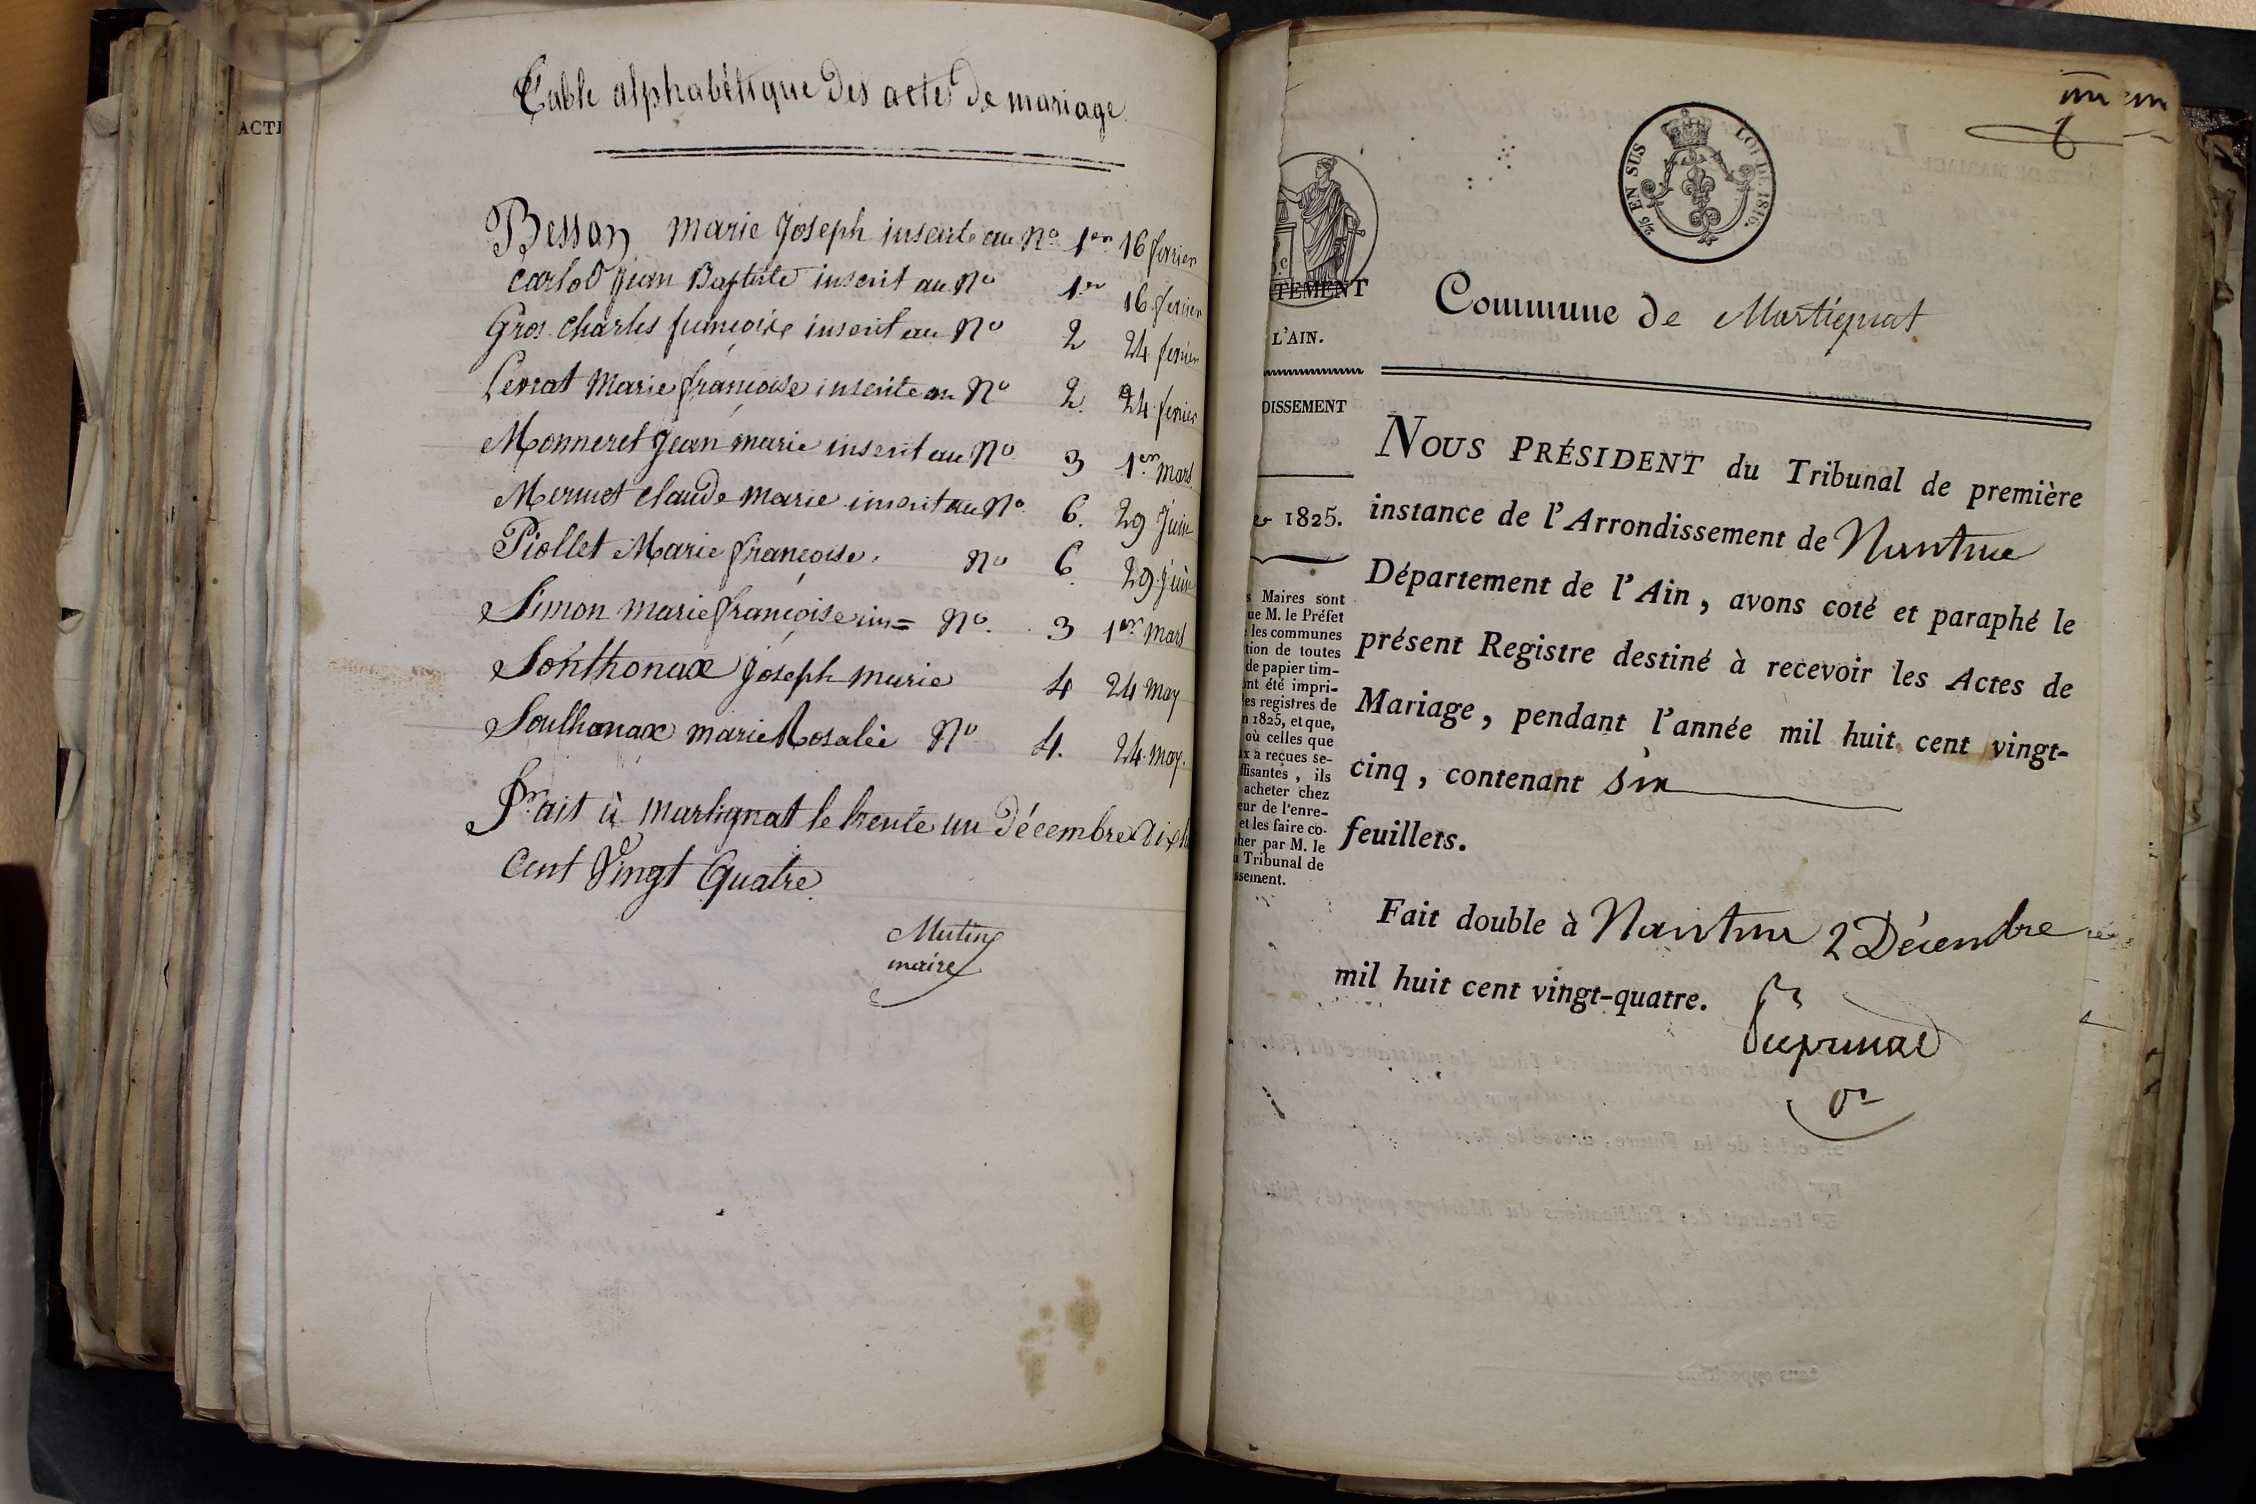 ACTE
Table alphabétique des actes de mariage
Besson marie Joseph inscrite au No 1er 16 fevrier
Carlod jean Baptiste inscrit au No 1er 16 fevrier
Gros Charles françois inscrit au No 2 24 fevrier
Levrat Marie françoise inscrite au No 2. 24 fevrier
Monneret Jean marie inscrit au No 3 1er mars
Mermet claude marie inscrit au No 6. 29 Juin
Piollet Marie françoise. No 6. 29 juin
Simon marie françoise ins= No. 3 1er mars
Sonthonax joseph marie 4 24 may
Southonax marie Rosalie No 4. 24 may.
Fait à martignat le trente un décembre dix h
cent Vingt Quatre
Mutin
maire
2/5 EN SUS LOI DE 1816.
TEMENT
L'AIN.
DISSEMENT
1825.
s Maires sont
ue M. le Préfet
les communes
tion de toutes
de papier tim-
ont été impri-
es registres de
n 1825, et que,
où celles que
ux a reçues se-
ffisantes, ils
acheter chez
eur de l'enre-
et les faire co-
her par M. le
u Tribunal de
ssement.
Commune de Martignat
NOUS PRÉSIDENT du Tribunal de première
instance de l'Arrondissement de Nantua
Département de l'Ain, avons coté et paraphé le
présent Registre destiné à recevoir les Actes de
Mariage, pendant l'année mil huit cent vingt-
cinq, contenant six
feuillets.
Fait double à Nantua 2 Décembre
mil huit cent vingt-quatre.